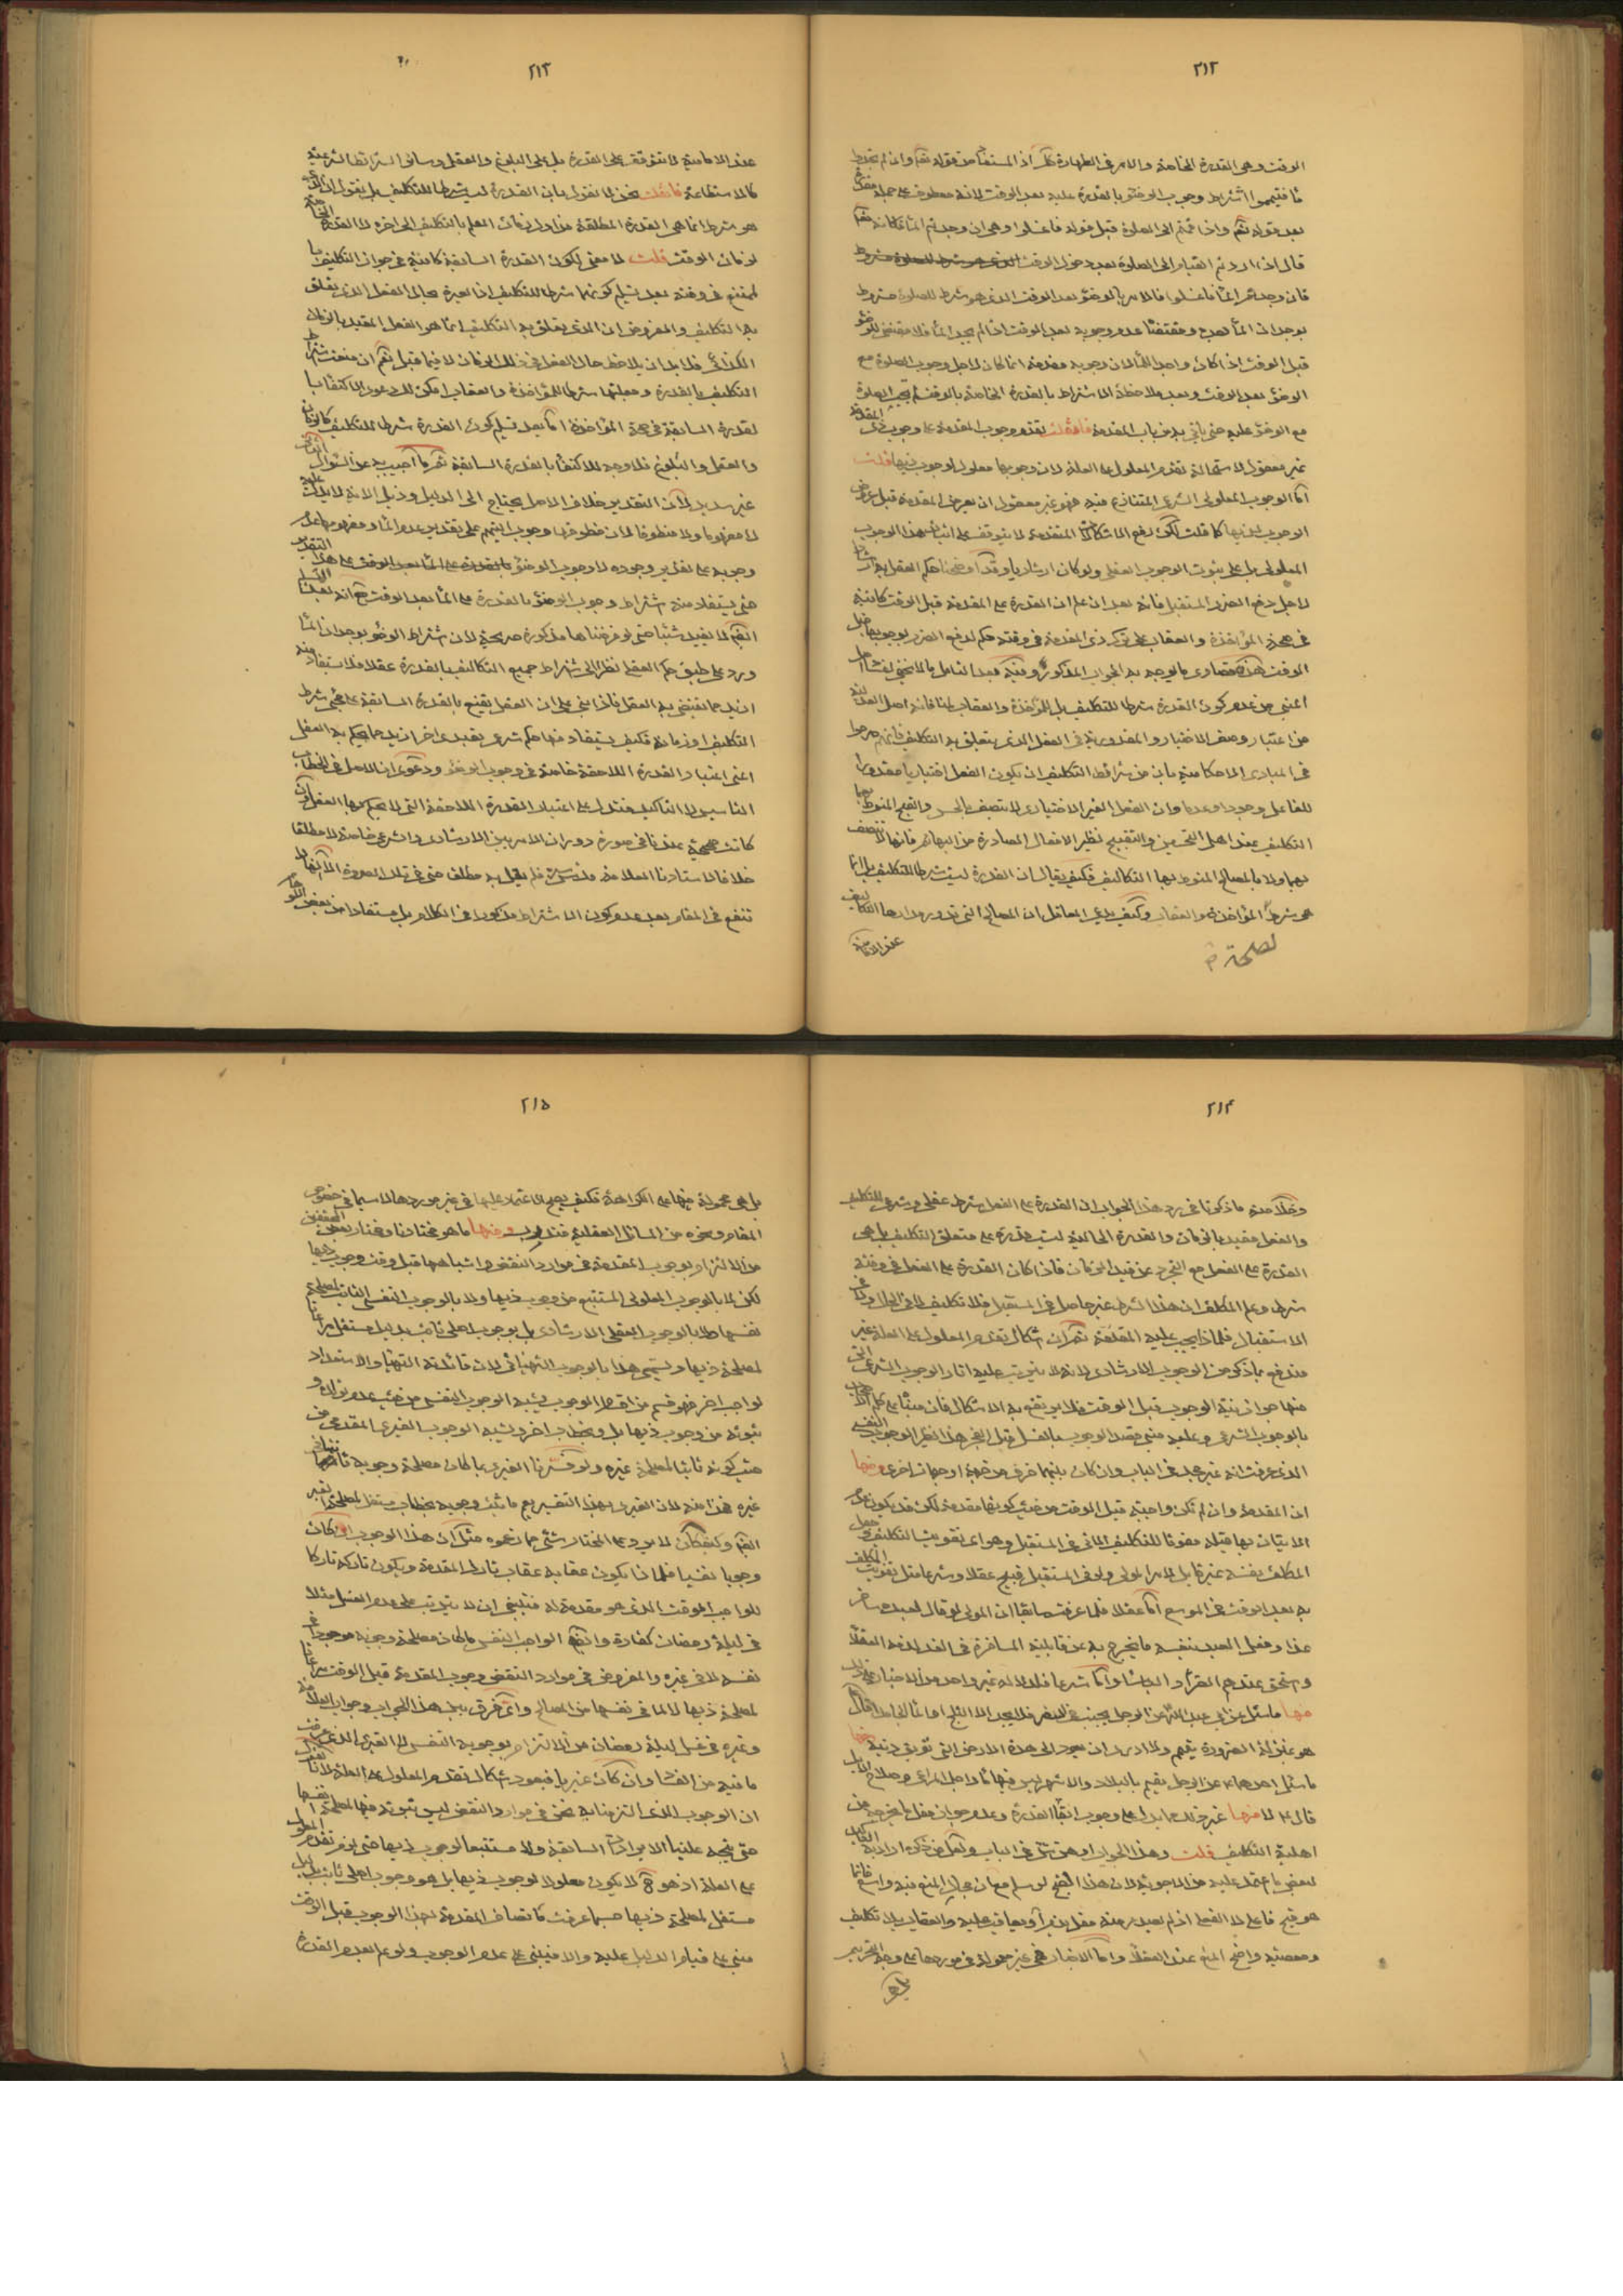 ٢١٢
الوقت وهى القدرة الخاصة والامر فى الطهارة كك اذ المستفاد من قوله تعم وان لم تجدوا
ماء فتيمموا اشتراط وجوب الوضوء بالقدرة عليه بعد الوقت لانه معطوف على جملة
بعد قوله تعم واذا قمتم الى الصلوة قبل قوله فاغسلوا وهى ان وجدتم الماء فكانه تعم
قال اذا اردتم القيام الى الصلوة بعد دخول الوقت
فان وجدتم الماء فاغسلوا فالامر بالوضوء بعد الوقت الذى هو شرط للصلوة مشروط
بوجدان الماء بعده ومقتضاه عدم وجوبه بعد الوقت اذا لم يجد الماء فلا مقتضى للوضوء
قبل الوقت اذا كان واجدا للماء لان وجوبه مقدمة انما كان لاجل وجوب الصلوة مع
الوضوء بعد الوقت وبعد ملاحظة الاشتراط بالقدرة الخاصة بالوقت لم يجب الصلوة
مع الوضوء عليه حتى ياتى به من باب المقدمة فان قلت تقدم وجوب المقدمة على وجوب ذى المقدمة
غير معقول لاستحالة تقدم المعلول على العلة لان وجوبها معلول لوجوب ذيها قلت
اما الوجوب المعلولى الشرعى المتنازع فيه فهو غير معقول ان يعرض المقدمة قبل عروض
الوجوب لذيها كما قلت لكن دفع الاشكالات المتقدمة لا يتوقف على اثبات هذا الوجوب
المعلولى بل على ثبوت الوجوب العقلى ولو كان ارشاديا وقد اوضحنا حكم العقل به ارشادا
لاجل دفع الضرر المستقبل فانه بعد ان علم ان القدرة على المقدمة قبل الوقت كافية
فى صحة المؤاخذة والعقاب على ترك ذى المقدمة فى وقته حكم لدفع الضرر بوجوبها قبل
الوقت هذا قصارى ما يوجه به الجواب المذكور وفيه بعد التامل ما لا يخفى
اعنى من عدم كون القدرة شرطا للتكليف بل للمؤاخذة والعقاب لمنافاته اصل العدلية
من اعتبار وصف الاختيار والمقدورية فى الفعل الذى يتعلق به التكليف فانهم صرحوا
فى المبادى الاحكامية بان من شرائط التكليف ان يكون الفعل اختياريا مقدورا
للفاعل وجودا وعدما وان الفعل الغير الاختيارى لا يتصف بالحسن والقبح المنوط بهما
التكليف عند اهل التحسين والتقبيح نظير الافعال الصادرة من البهائم فانها لا تتصف
بهما ولا بالمصالح المنوط بها التكاليف فكيف يقال ان القدرة ليست شرطا للتكليف بل انما
هى شرط المؤاخذة والعقاب وكيف يدعى العاقل ان المصالح التى تدور مدارها التكاليف
عند الامامية
٢١٣
عند الامامية لا تتوقف على القدرة بل على البلوغ والعقل وسائر الشرائط الشرعية
كالاستطاعة فان قلت نحن لا نقول بان القدرة ليست شرطا للتكليف بل نقول ان الذى
هو شرط انما هى القدرة المطلقة من اول زمان العلم بالتكليف الى اخره لا القدرة الخاصة
بزمان الوقت قلت لا معنى لكون القدرة السابقة كافية فى جواز التكليف بما
يمتنع فى وقته بعد تسليم كونها شرطا للتكليف اذ العبرة بحال الفعل الذى يتعلق
به التكليف والمفروض ان الذى يتعلق به التكليف انما هو الفعل المقيد بالزمان
الكذائى فلا بد ان يلاحظ حال الفعل فى ذلك الزمان لا فيما قبل نعم ان منعت اشتراط
التكليف بالقدرة وجعلتها شرطا للمؤاخذة والعقاب امكن لك دعوى الاكتفاء با
لقدرة السابقة فى صحة المؤاخذة اما بعد تسليم كون القدرة شرطا للتكليف كالزمان
والعقل والبلوغ فلا وجه للاكتفاء بالقدرة السابقة ثم ما اجيب به عن السؤال
غير سديد لان التقدير خلاف الاصل يحتاج الى الدليل وذيل الاية لا يدل عليه
لا مفهوما ولا منطوقا لان منطوقها وجوب التيمم على تقدير عدم الماء ومفهومها عدم
وجوبه على تقدير وجوده لا وجوب الوضوء بالقدرة على الماء بعد الوقت على هذا التقدير
حتى يستفاد منه اشتراط وجوب الوضوء بالقدرة على الماء بعد الوقت مع انه
ايضا لا يفيد شيئا حتى لو فرضناها مذكورة صريحة لان اشتراط الوضوء بوجدان الماء
ورد على طبق حكم العقل نظرا الى اشتراط جميع التكاليف بالقدرة عقلا فلا يستفاد منه
ازيد مما يقتضى به العقل فاذا بنى على ان العقل يقنع بالقدرة السابقة على مجىء شرط
التكليف او زمانه فكيف يستفاد منها حكم شرعى تعبدى اخر ازيد مما يحكم به العقل
اعنى اعتبار القدرة اللاحقة خاصة فى وجوب الوضوء ودعوى ان الاصل فى الخطاب
التاسيس لا التاكيد فتدل على اعتبار القدرة اللاحقة التى لا يحكم بها العقل وان
كانت صحيحة عندنا فى صورة دوران الامر بين الارشادى والشرعى خاصة لا مطلقا
خلافا لاستادنا العلامة قدس سره فلم يقل به مطلقا حتى فى تلك الصورة الا انها لا
تنفع فى المقام بعد عدم كون الاشتراط مذكورا فى الكلام بل مستفادا من بعض اللوازم
٢١۴
وخلاصة ما ذكرنا فى رد هذا الجواب ان القدرة على الفعل شرط عقلى وشرعى للتكليف
والفعل مقيد بالزمان والقدرة الحالية ليست قدرة على متعلق التكليف بل هى
القدرة على الفعل مع التجرد عن قيد الزمان فاذا كان القدرة على الفعل فى وقته
شرطا وعلم المكلف ان هذا الشرط غير حاصل فى المستقبل فلا تكليف لا فى الحال ولا فى
الاستقبال فلماذا يجب عليه المقدمة ثم ان اشكال تقدم المعلول على العلة غير
مندفع بما ذكر من الوجوب الارشادى لانه لا يترتب عليه اثار الوجوب الشرعى التى
منها جواز نية الوجوب قبل الوقت فلا يرتفع به الاشكال
بالوجوب الشرعى وعليه مبنى قصد الوجوب بالغسل قبل الفجر هذا نظير الوجوب النفسى
الذى عرفت انه غير مجد فى الباب وان كان بينهما فرق من جهة او جهات اخرى ومنها
ان المقدمة وان لم تكن واجبة قبل الوقت من حيث كونها مقدمة لكن قد يكون عدم
الاتيان بها قبله مفوتا للتكليف الاتى فى المستقبل وهو اى تفويت التكليف وجعل
المكلف نفسه غير قابل لامر المولى ولو فى المستقبل قبيح عقلا وشرعا مثل تفويت المكلف
به بعد الوقت فى الموسع اما عقلا فلما عرفت سابقا ان المولى لو قال لعبده سافر
غدا وفعل العبد بنفسه ما يخرج به عن قابلية المسافرة فى الغد لذمه العقلاء
واستحق عندهم الطرد والعقاب واما شرعا فلدلالة غير واحد من الاخبار على ذلك
منها ما سئل عن ابى عبد الله عن الرجل يجنب فى السفر فلا يجد الا الثلج او ماء جامدا قال
هو بمنزلة الضرورة يتيمم ولا ارى ان يعود الى هذه الارض التى توبق دينه ومنها
ما سئل احدهما عن الرجل يقيم بالبلاد والاشهر ليس فيها ماء من اجل المراعى وصلاح الابل
قال لا ومنها غير ذلك مما يدل على وجوب ابقاء القدرة وعدم جواز فعل ما يخرجه عن
اهلية التكليف قلت وهذا الجواب اوهن شىء فى الباب
لبعض ما اعتمد عليه من الاجوبة لان هذا القبح لو سلم مع ان مجال المنع فيه واسع فانما
هو قبح فاعلى لا الفعل اذ لم يصدر منه فعل يذم او يعاقب عليه والعقاب بلا تكليف
ومعصية واضح المنع عند العقلاء واما الاخبار فهى غير معمولة فى موردها على وجه التحريم
بل هى
٢١۵
بل هى محمولة فيها على الكراهة فكيف يصح الاعتماد عليها فى غير موردها لا سيما فى خصوص
المقام ونحوه من المسائل العقلية فتدبر ومنها ما هو مختارنا ومختار بعض المحققين
من الالتزام بوجوب المقدمة فى موارد النقض واشباهها قبل وقت وجوب ذيها
لكن لا بالوجوب المعلولى المستتبع من وجوب ذيها ولا بالوجوب النفسى الثابت لمصلحة
نفسها ولا بالوجوب العقلى الارشادى بل بوجوب اصلى ثابت بدليل مستقل مراعاة
لمصلحة ذيها ويسمى هذا بالوجوب التهيائى لان فائدته التهيا والاستعداد
لواجب اخر فهو قسم من اقسام الوجوب يشبه الوجوب النفسى من حيث عدم تولده و
ثبوته من وجوب ذيها بل وبخطاب اخر ويشبه الوجوب الغيرى المقدمى من
حيث كونه ثابتا لمصلحة غيره ولو فسرنا الغيرى بما كان مصلحة وجوبه ثابتة فى
غيره فهذا منه لان الغيرى بهذا التفسير يعم ما ثبت وجوبه بخطاب مستقل لمصلحة الغير
ايضا وكيف كان لا يرد على المختار شىء مما زعموه مثل ان هذا الوجوب لو كان
وجوبا نفسيا فلماذا يكون عقابه عقاب تارك المقدمة ويكون تاركه تاركا
للواجب الموقت الذى هو مقدمة له فينبغى ان لا يترتب على عدم الغسل مثلا
فى ليلة رمضان كفارة وايضا الواجب النفسى ما كان مصلحة وجوبه موجودا فى
نفسه لا فى غيره والمفروض فى موارد النقض وجوب المقدمة قبل الوقت مراعاة
لمصلحة ذيها لا لما فى نفسها من المصالح واى فرق بين هذا الجواب وجواب العلامة
وغيره فى غسل ليلة رمضان من الالتزام بوجوبه النفسى لا الغيرى الذى عرفت
ما فيه من الفساد وان كان غيريا فيعود اشكال تقدم المعلول على العلة لانا نقول
ان الوجوب الذى التزمنا به نحن فى موارد النقض ليس ثبوته فيها لمصلحة نفسها
حتى يتجه علينا الايرادات السابقة ولا مستتبعا لوجوب ذيها حتى يلزم تقدم المعلول
على العلة اذ هو ح لا يكون معلولا لوجوب ذيها بل هو وجوب اصلى ثابت بدليل
مستقل لمصلحة ذيها حسبما عرفت فاتصاف المقدمة بهذا الوجوب قبل الوقت
مبنى على قيام الدليل عليه والا فيبنى على عدم الوجوب ولو علم بعدم القدرة